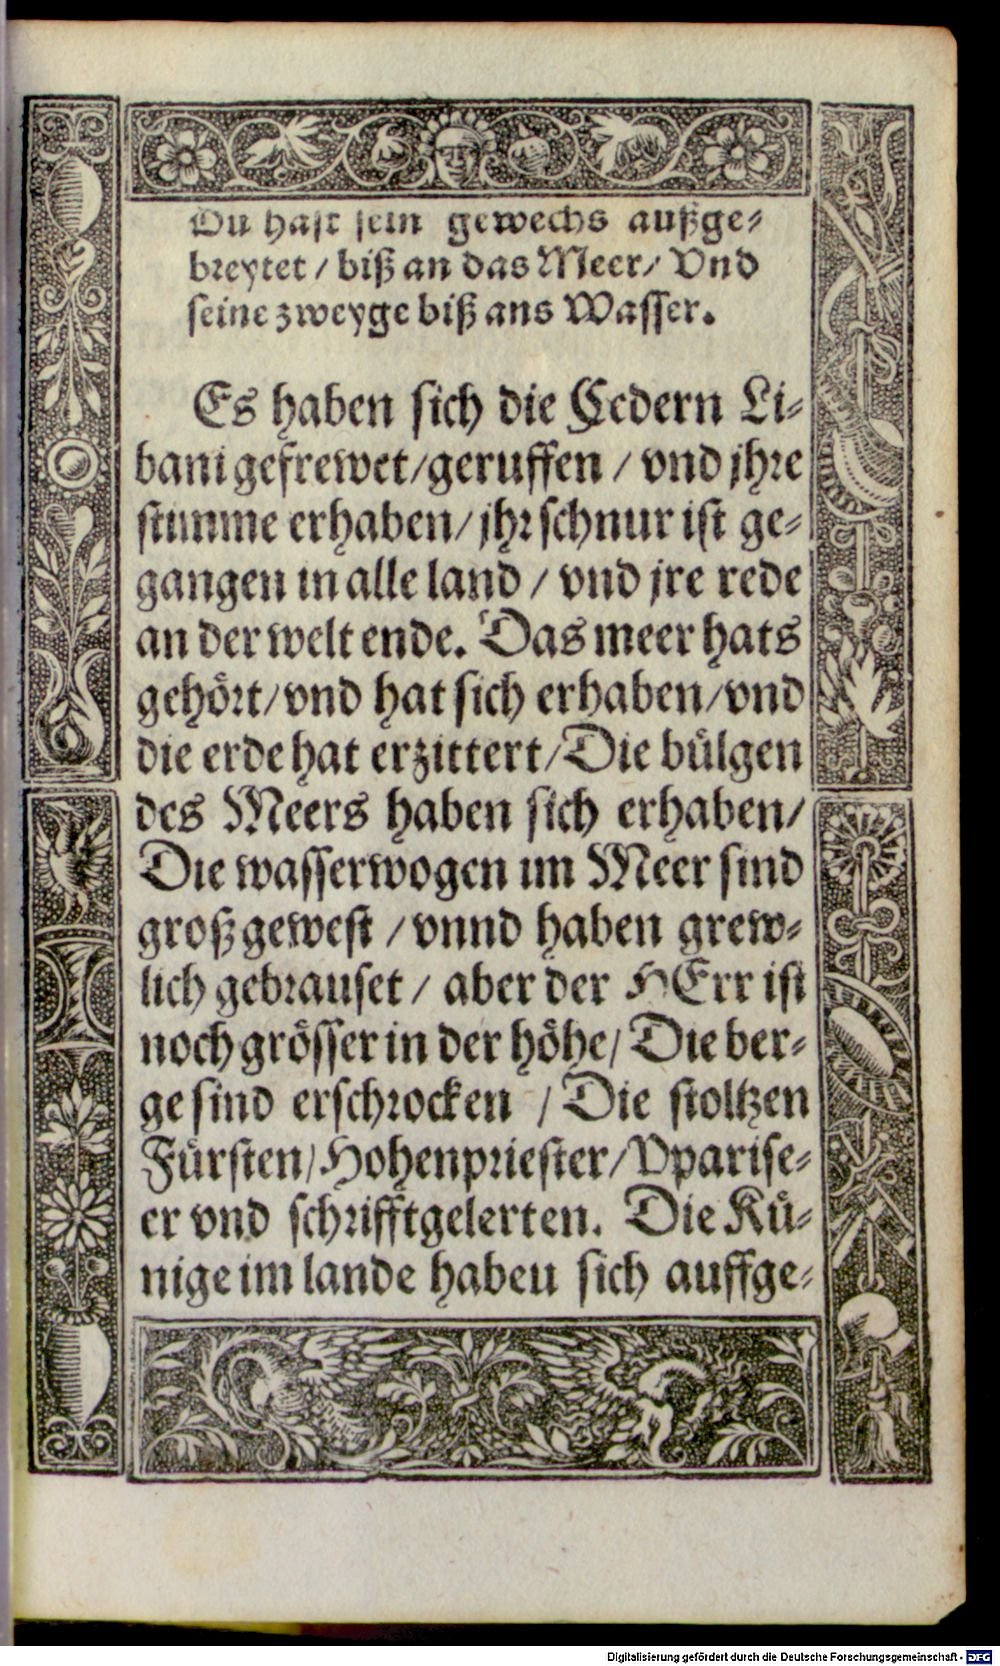 Du hast sein gewechs außge⸗
breytet / biß an das Meer / Vnd
seine zweyge biß ans Wasser.
Es haben sich die Cedern Li⸗
bani gefrewet / geruffen / vnd jhre
stimme erhaben / jhr schnur ist ge⸗
gangen in alle land / vnd jre rede
an der welt ende. Das meer hats
gehört / vnd hat sich erhaben / vnd
die erde hat erzittert / Die bülgen
des Meers haben sich erhaben /
Die wasserwogen im Meer sind
groß gewest / vnnd haben grew⸗
lich gebrauset / aber der HErr ist
noch grösser in der höhe / Die ber⸗
ge sind erschrocken / Die stoltzen
Fürsten / Hohenpriester / Vparise⸗
er vnd schrifftgelerten. Die Kü⸗
nige im lande habeu sich auffge⸗
Digitalisierung gefördert durch die Deutsche Forschungsgemeinschaft - DFG